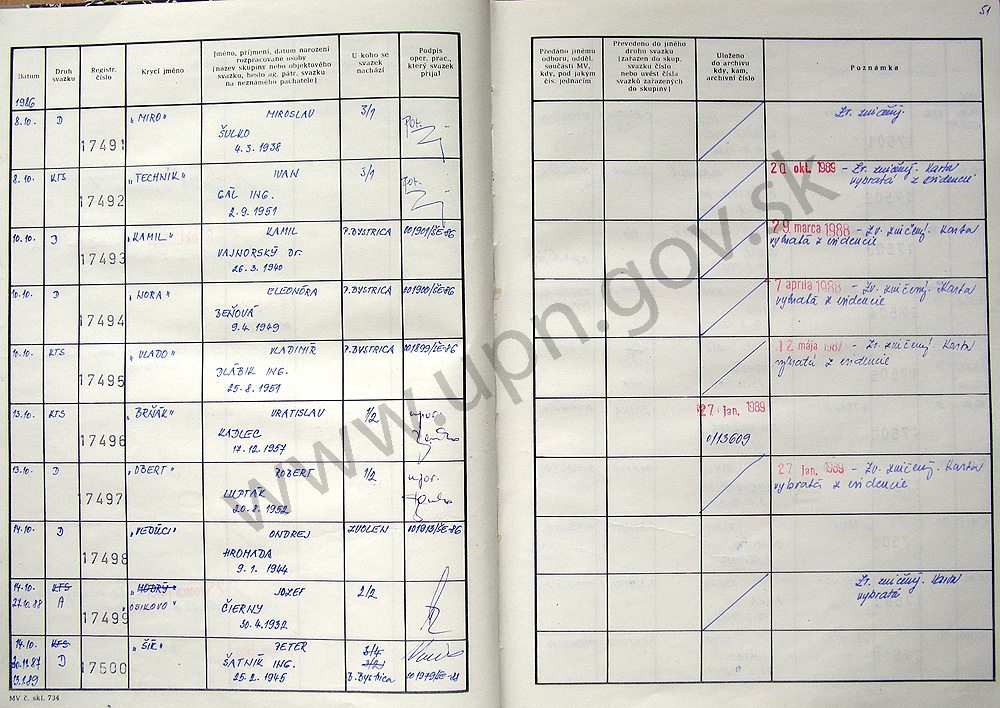 51
Datum
Druh svazku
Registr. číslo
Krycí jméno
Jméno, příjmení, datum narození rozpracované osoby
[název skupiny nebo objektového svazku, heslo ag. pátr. svazku na neznámého pachatele]
U koho se svazek nachází
Podpis oper. prac., který svazek přijal
Předáno jinému odboru, odděl. součásti MV, kdy, pod jakým čís. jednacím
Převedeno do jiného druhu svazku [zařazen do skup. svazku číslo nebo uvést čísla svazků zařazených do skupiny]
Uloženo do archivu kdy, kam, archivní číslo
Poznámka
1986
8.10. D 17491 "MIRO" MIROSLAV 3/1
ŠULKO
4.3.1938
Zv. zničený.
8.10. KTS 17492 "TECHNIK" IVAN 3/1
GÁL ING.
2.9.1951
20. okt. 1989 - Zv. zničený. Karta
vybratá z evidencie
10.10. D 17493 "KAMIL" KAMIL P. BYSTRICA 001901/ŠE-86
VAJNORSKÝ Dr.
26.3.1940
29. marca 1988 - Zv. zničený. Karta
vybratá z evidencie
10.10. D 17494 "NORA" ELEONÓRA P. BYSTRICA 001900/ŠE-86
BEŇOVÁ
9.4.1949
7. apríla 1988 - Zv. zničený. Karta
vybratá z evidencie
10.10. KTS 17495 "VLADO" VLADIMÍR P. BYSTRICA 001899/ŠE-86
BLÁBIK ING.
25.8.1951
12. mája 1987 - Zv. zničený. Karta
vybratá z evidencie
13.10. KTS 17496 "BRŇÁK" VRATISLAV 1/2
KADLEC
17.12.1957
27. jan. 1989
0/13609
13.10. D 17497 "OBERT" ROBERT 1/2
LUPTÁK
20.8.1952
27. jan. 1989 - Zv. zničený. Karta
vybratá z evidencie
14.10. D 17498 "VEDÚCI" ONDREJ ZVOLEN 001913/ŠE-86
HROMADA
9.1.1944
14.10. KTS 17499 "MODRÝ" JOZEF 2/2
27.10.88 A "OSIKOVO" ČIERNY
30.4.1932
Zv. zničený. Karta
vybratá
14.10. KTS 17500 "ŠÍR" PETER 3/4
30.11.87 D ŠATNÍK ING. 3/2
13.1.89 25.2.1945 B. Bystrica
MV č. skl. 734
www.upn.gov.sk